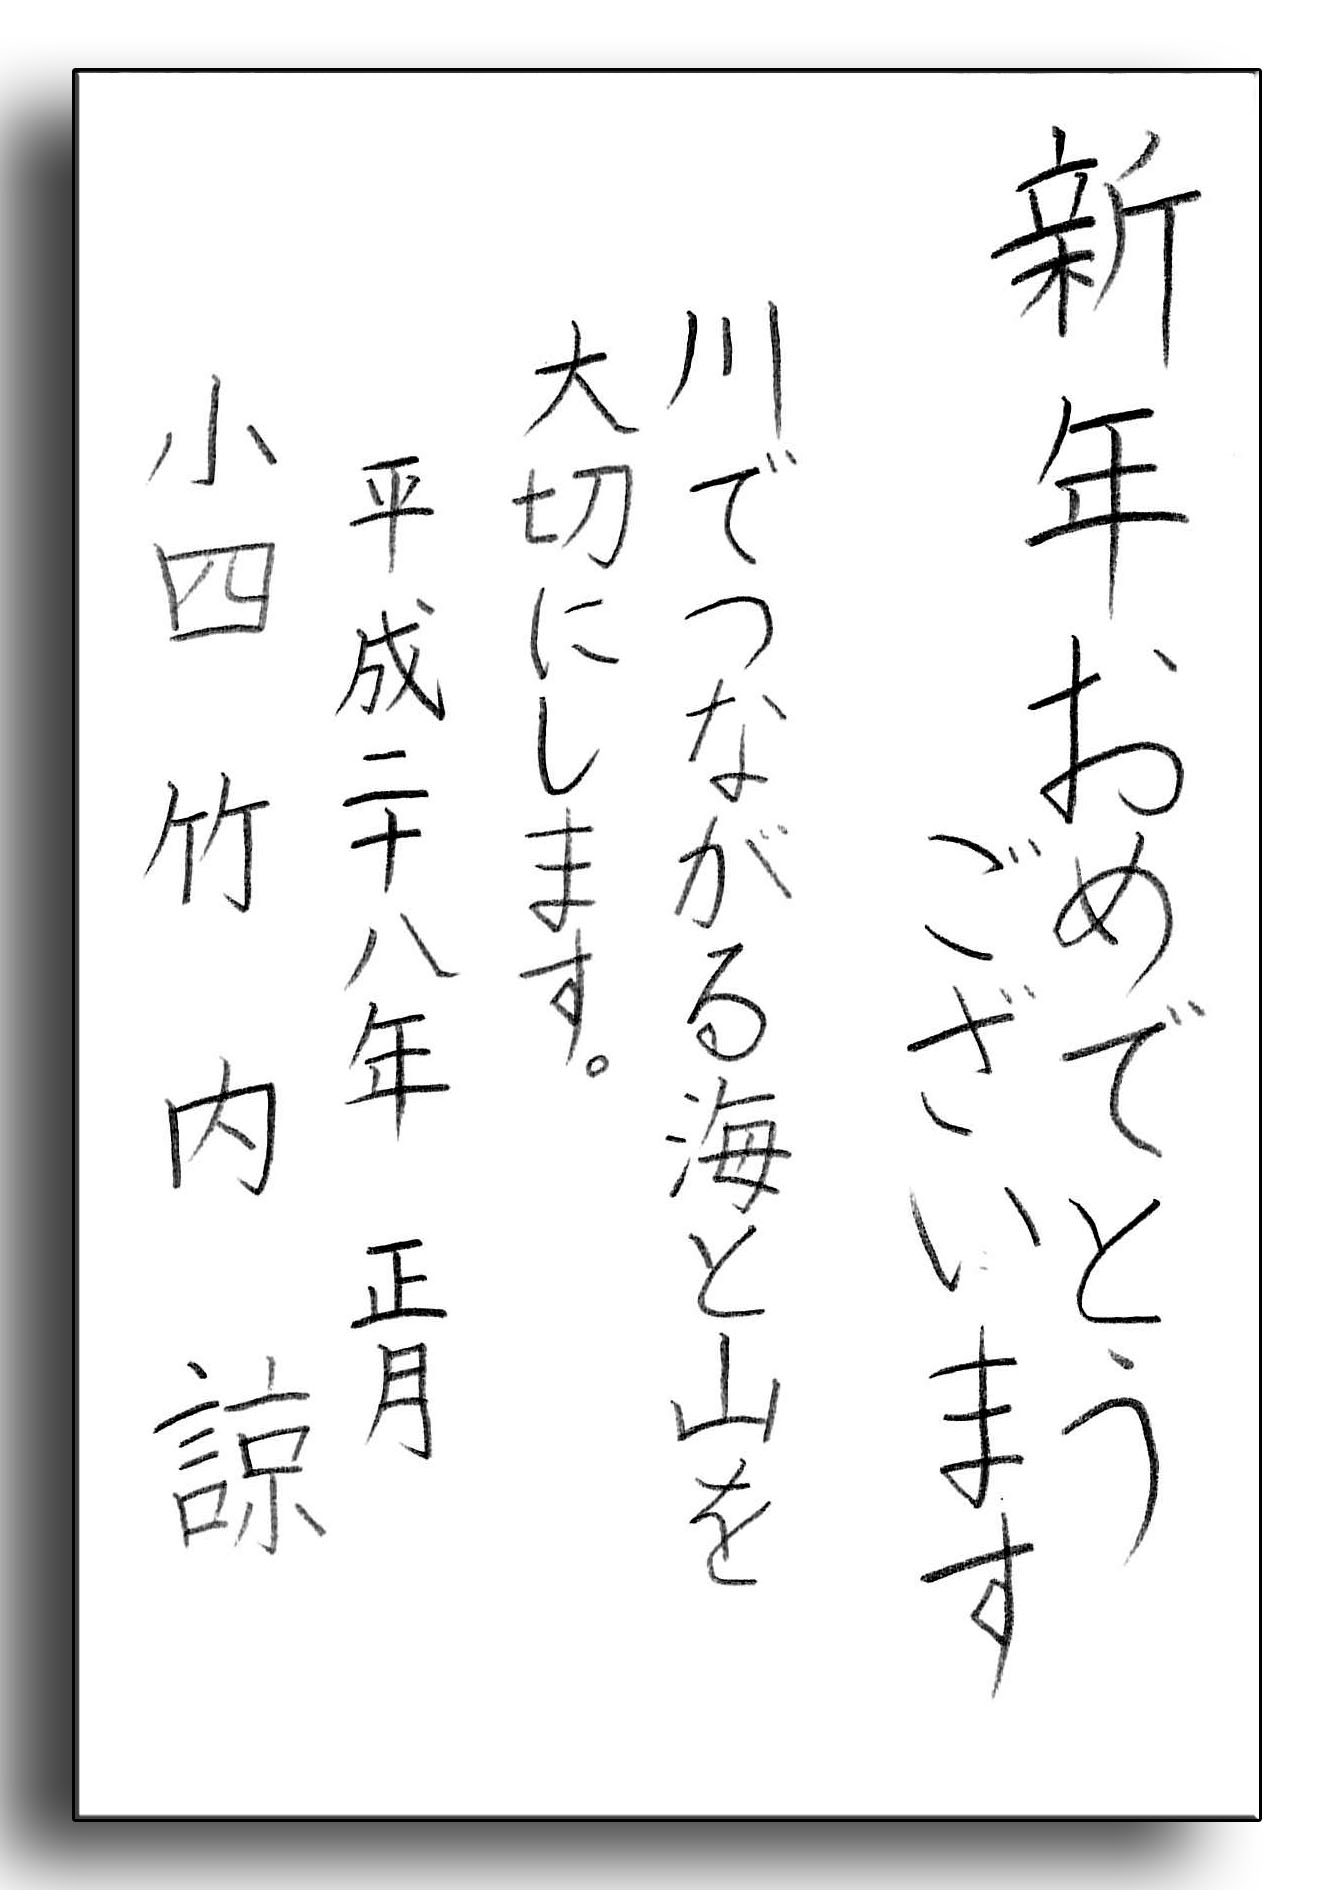 新年おめでとう
ございます
川でつながる海と山を
大切にします。
平成二十八年 正月
小四 竹内 諒